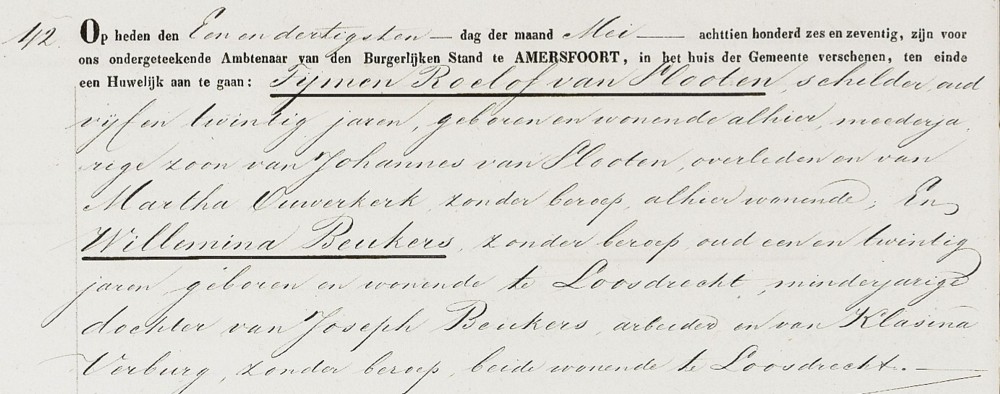 1/2. Op heden den Een en dertigsten — dag der maand Mei — achttien honderd zes en zeventig, zijn voor
ons ondergeteekende Ambtenaar van den Burgerlijken Stand te AMERSFOORT, in het huis der Gemeente verschenen, ten einde
een Huwelijk aan te gaan: Tijmen Roelof van Slooten, schilder, oud
vijf en twintig jaren, geboren en wonende alhier, meederja-
rige zoon van Johannes van Slooten, overleden en van
Martha Ouwerkerk, zonder beroep, alhier wonende, En
Willemina Beukers, zonder beroep oud een en twintig
jaren geboren en wonende te Loosdrecht, minderjarige
dochter van Joseph Beukers, arbeider en van Klasina
Verburg, zonder beroep, beide wonende te Loosdrecht. —